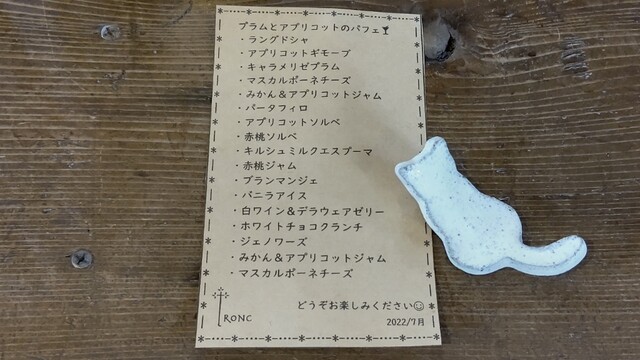 プラムとアプリコットのパフェ
・ラングドシャ
・アプリコットギモーブ
・キャラメリゼプラム
・マスカルポーネチーズ
・みかん＆アプリコットジャム
・パータフィロ
・アプリコットソルベ
・赤桃ソルベ
・キルシュミルクエスプーマ
・赤桃ジャム
・ブランマンジェ
・バニラアイス
・白ワイン＆デラウェアゼリー
・ホワイトチョコクランチ
・ジェノワーズ
・みかん＆アプリコットジャム
・マスカルポーネチーズ
どうぞお楽しみください☺
TRONC
2022/7月